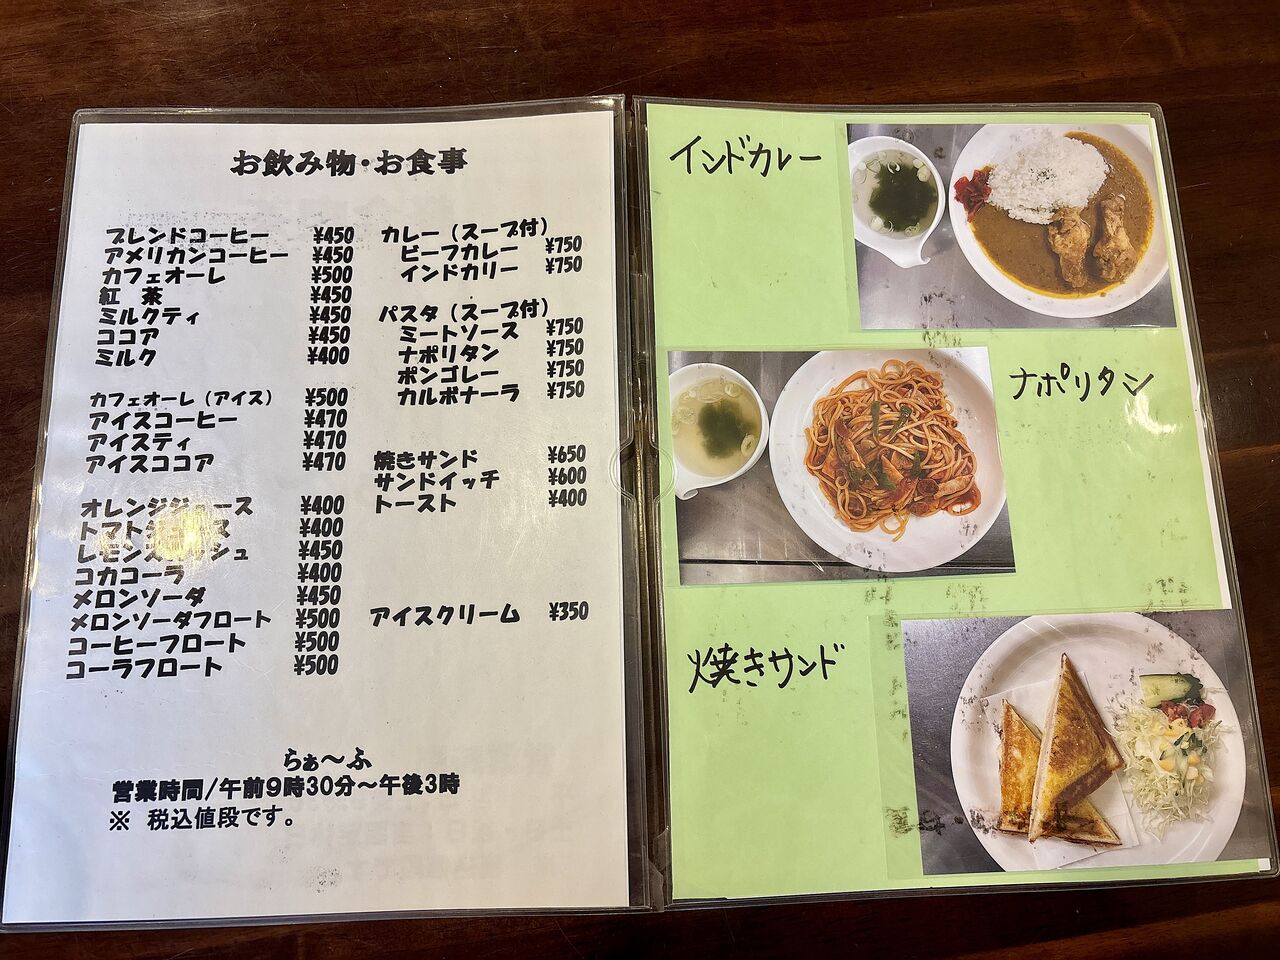 お飲み物・お食事
ブレンドコーヒー ¥450
アメリカンコーヒー ¥450
カフェオーレ ¥500
紅 茶 ¥450
ミルクティ ¥450
ココア ¥450
ミルク ¥400
カフェオーレ(アイス) ¥500
アイスコーヒー ¥470
アイスティ ¥470
アイスココア ¥470
オレンジジュース ¥400
トマトジュース ¥400
レモンスカッシュ ¥450
コカコーラ ¥400
メロンソーダ ¥450
メロンソーダフロート ¥500
コーヒーフロート ¥500
コーラフロート ¥500
カレー(スープ付)
ビーフカレー ¥750
インドカリー ¥750
パスタ(スープ付)
ミートソース ¥750
ナポリタン ¥750
ボンゴレー ¥750
カルボナーラ ¥750
焼きサンド ¥650
サンドイッチ ¥600
トースト ¥400
アイスクリーム ¥350
らぁ～ふ
営業時間/午前9時30分～午後3時
※ 税込値段です。
インドカレー
ナポリタン
焼きサンド